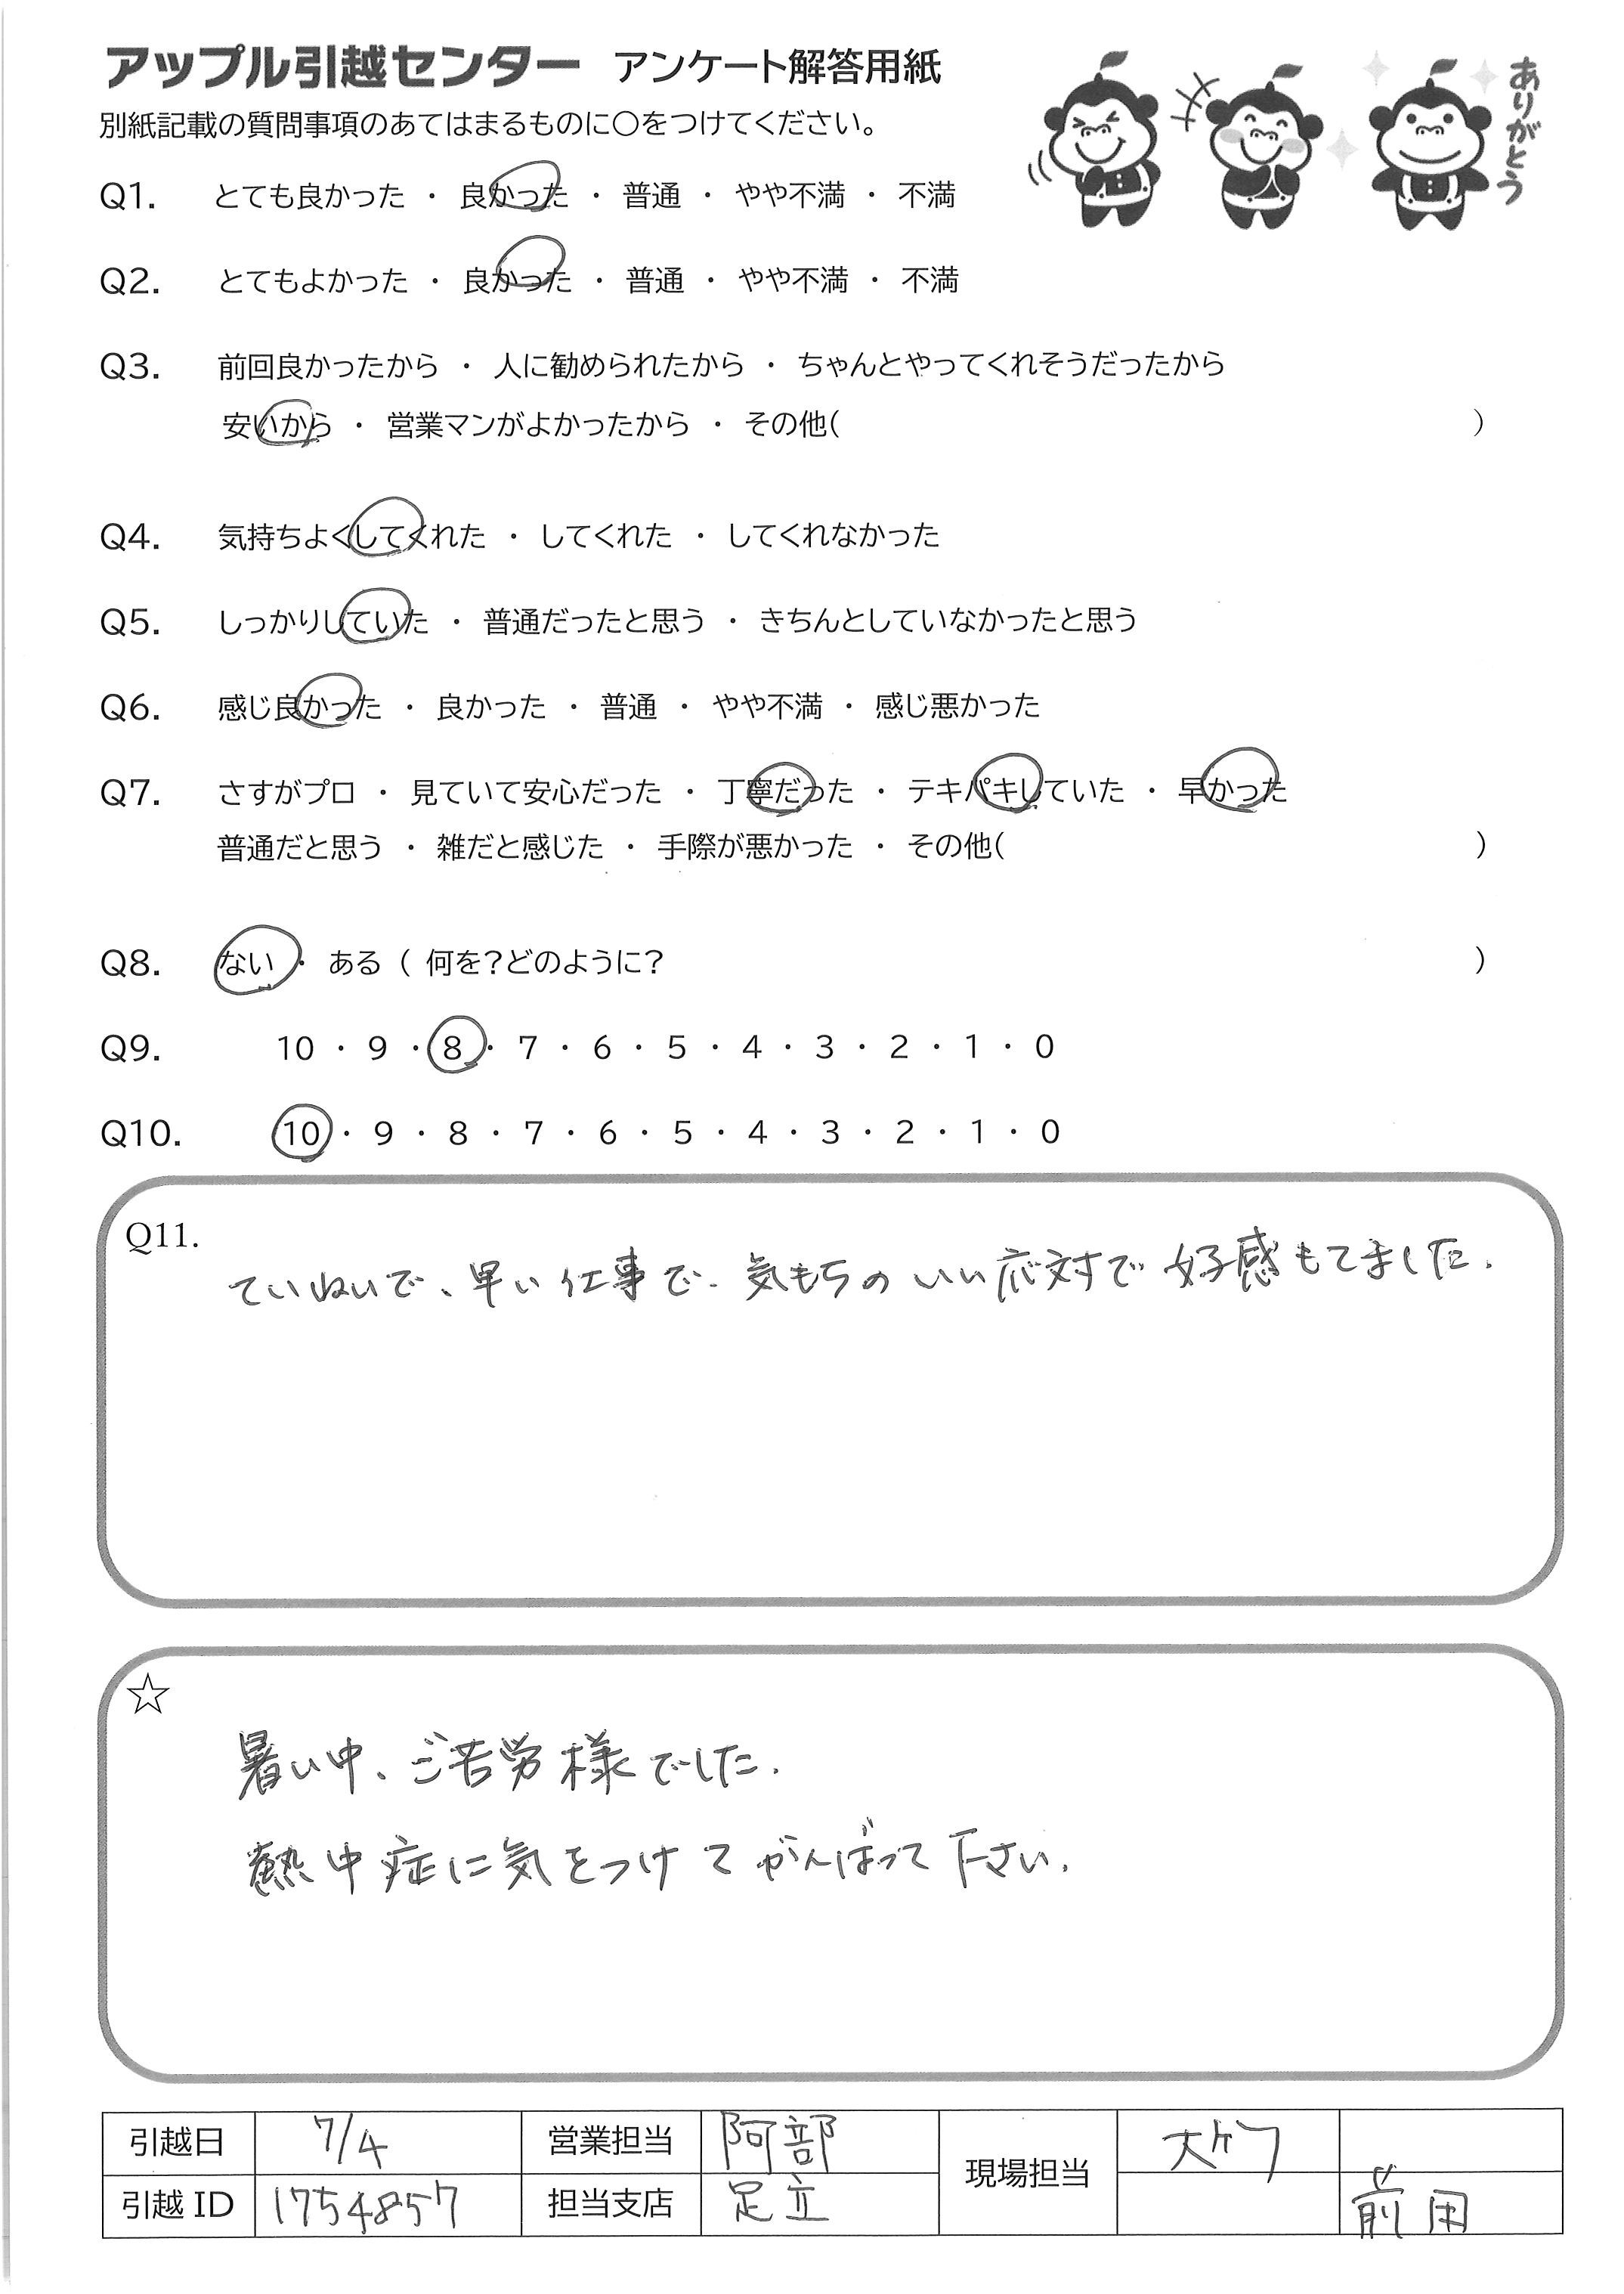 アップル引越センター アンケート解答用紙
ありがとう
別紙記載の質問事項のあてはまるものに○をつけてください。
Q1. とても良かった ・ 良かった ・ 普通 ・ やや不満 ・ 不満
Q2. とてもよかった ・ 良かった ・ 普通 ・ やや不満 ・ 不満
Q3. 前回良かったから ・ 人に勧められたから ・ ちゃんとやってくれそうだったから
安いから ・ 営業マンがよかったから ・ その他( )
Q4. 気持ちよくしてくれた ・ してくれた ・ してくれなかった
Q5. しっかりしていた ・ 普通だったと思う ・ きちんとしていなかったと思う
Q6. 感じ良かった ・ 良かった ・ 普通 ・ やや不満 ・ 感じ悪かった
Q7. さすがプロ ・ 見ていて安心だった ・ 丁寧だった ・ テキパキしていた ・ 早かった
普通だと思う ・ 雑だと感じた ・ 手際が悪かった ・ その他( )
Q8. ない ・ ある ( 何を?どのように? )
Q9. 10 ・ 9 ・ 8 ・ 7 ・ 6 ・ 5 ・ 4 ・ 3 ・ 2 ・ 1 ・ 0
Q10. 10 ・ 9 ・ 8 ・ 7 ・ 6 ・ 5 ・ 4 ・ 3 ・ 2 ・ 1 ・ 0
Q11.
ていねいで、早い仕事で、気もちのいい応対で好感もてました.
☆
暑い中、ご苦労様でした.
熱中症に気をつけてがんばって下さい.
引越日 7/4 営業担当 阿部 現場担当
引越 ID 1754857 担当支店 足立